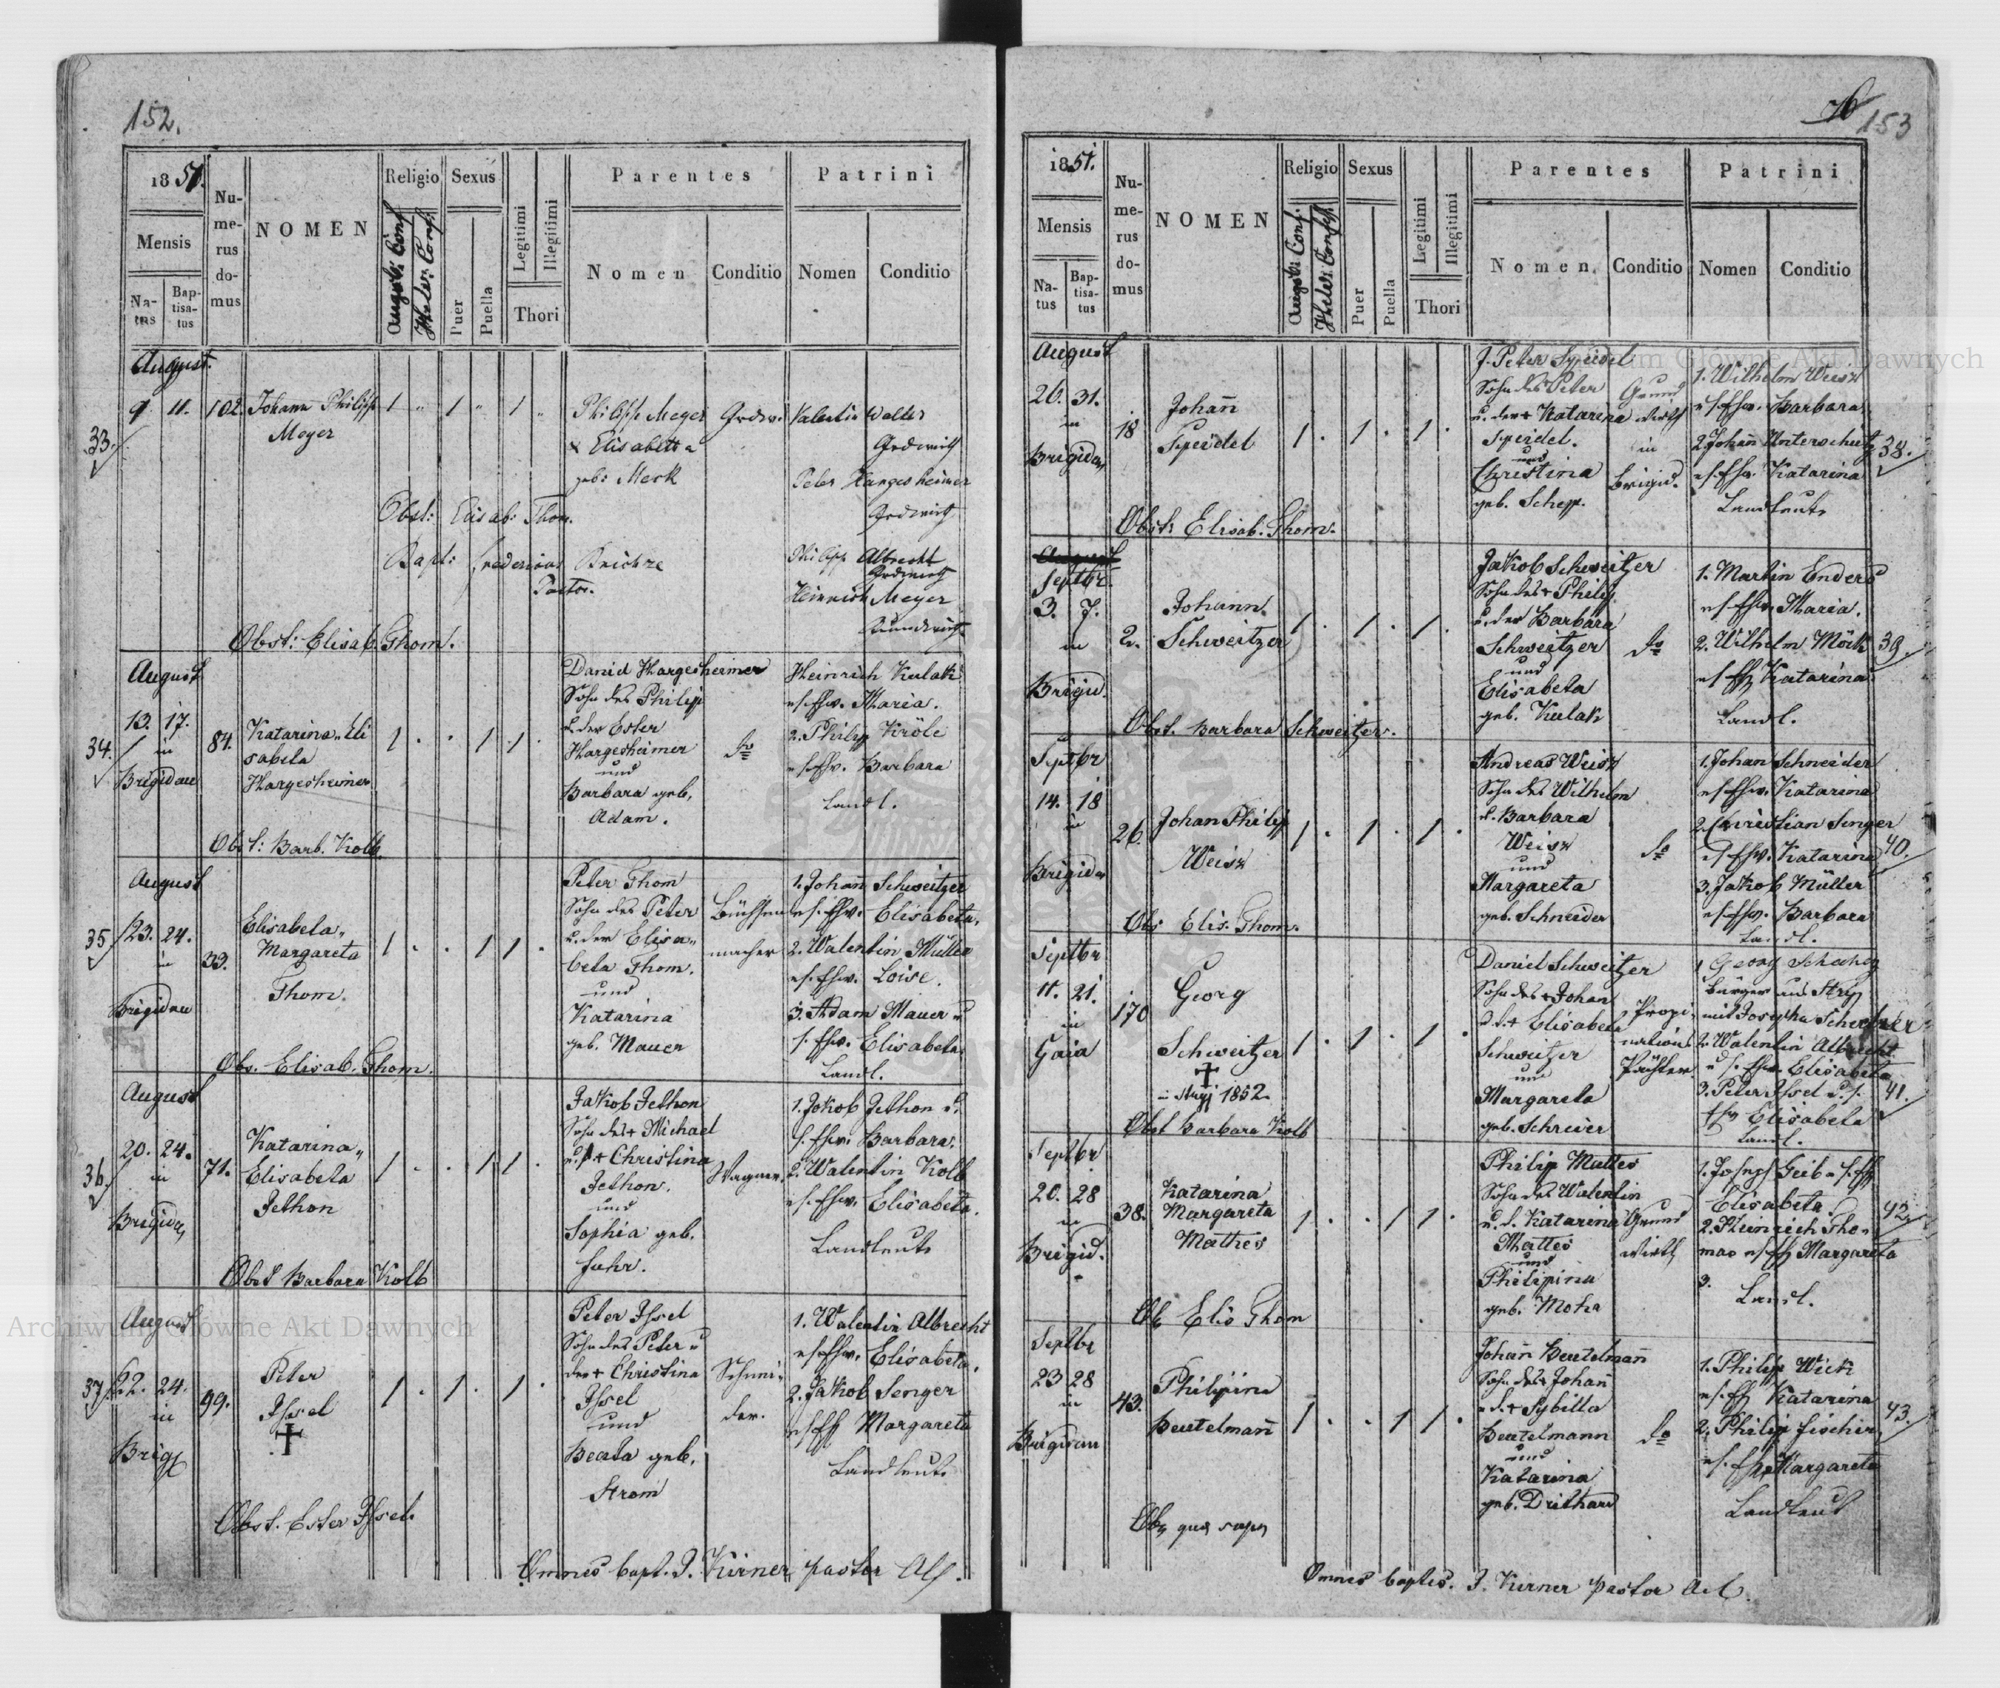 152.
1851.
Mensis
Natus
Baptisatus
Numerus domus
NOMEN
Religio
Augsb: Conf.
Helv: Conf.
Sexus
Puer
Puella
Legitimi
Illegitimi
Thori
Parentes
Nomen
Conditio
Patrini
Nomen
Conditio
August.
33.
9. 11. 102. Johann Philipp
Meyer
1 " 1 " 1 "
Philipp Meyer
Elisabetta
geb: Merk
Valentin Walter
Peter Hargesheimer
Philipp Albrecht
Heinrich Meyer
Obst: Elisab: Thom.
Bapt: Fredericus
Pastor.
Obst: Elisab. Thom.
August
34.
13. 17.
in
Brigidau
84. Katarina Eli
sabeta
Hargesheimer
1 . . 1 1 .
Daniel Hargesheimer
Sohn des Philip
u. der Ester
Hargesheimer
und
Barbara geb.
Adam.
do
Heinrich Kulak
u. s. Ehw. Maria.
2. Philip Kröle
u. s. Ehw. Barbara
Landl.
Obst: Barb. Kolb.
August
35
23. 24.
in
Brigidau
33.
Elisabeta
Margareta
Thom.
1 . . 1 1 .
Peter Thom
Sohn des Peter
u. der Elisa
beta Thom.
und
Katarina
geb. Mauer
Büchsen
macher
1. Johann Schweitzer
u. s. Ehw. Elisabeta.
2. Walentin Müller
u. s. Ehw. Loise.
3. Adam Mauer u
s. Ehw. Elisabeta
Landl.
Obs. Elisab. Thom.
August
36.
20. 24.
in
Brigidau
71.
Katarina
Elisabeta
Jethon
1 . . 1 1 .
Jakob Jethon
Sohn des + Michael
u. d + Christina
Jethon.
und
Sophia geb.
Fuhr.
Wagner.
1. Jakob Jethon u.
s. Ehw. Barbara.
2. Walentin Kolb
u. s. Ehw. Elisabeta.
Landleute
Obst Barbara Kolb
August
37.
22. 24.
in
Brigd
99.
Peter
Issel
1 . 1 . 1 .
Peter Issel
Sohn des Peter u
der + Christina
Issel
und
Beata geb.
Strom
Schnei
der.
1. Walentin Albrecht
u. s. Ehw. Elisabeta.
2. Jakob Senger
u. s. Ehf Margareta
Landleute
Obst. Ester Issel.
Omnes bapt. J. Kirner pastor
76
153
1851.
Mensis
Natus
Baptisatus
Numerus domus
NOMEN
Religio
Augsb: Conf.
Helv: Conf.
Sexus
Puer
Puella
Legitimi
Illegitimi
Thori
Parentes
Nomen
Conditio
Patrini
Nomen
Conditio
August
26. 31.
in
Brigidau
18
Johann
Speidel
1 . 1 . 1 .
J. Peter Speidel
Sohn des Peter
u. der + Katarina
Speidel.
und
Christina
geb. Schepp.
Grund
wirth
in
Brigid.
1. Wilhelm Weisz
u. s. Ehw. Barbara
2. Johann Unterschutz
u. s. Ehw. Katarina
Landleute
38.
Obst: Elisab. Thom.
August
Septbr.
3. 7.
in
Brigid.
2.
Johann
Schweitzer
1 . 1 . 1 .
Jakob Schweitzer
Sohn des + Philip
u. der Barbara
Schweitzer
und
Elisabeta
geb. Kulak
do
1. Martin Enders
u. s. Ehw. Maria.
2. Wilhelm Möck
u. s. Ehf Katarina
Landl.
39.
Obst. Barbara Schweitzer.
Septbr
14. 18
in
Brigidau
26.
Johan Philip
Weisz
1 . 1 . 1 .
Andreas Weisz
Sohn des Wilhelm
u. Barbara
Weisz
und
Margareta
geb. Schneider
do
1. Johan Schneider
u. s. Ehw. Katarina
2. Christian Senger
u. s. Ehw. Katarina
3. Jakob Müller
u. s. Ehw. Barbara
Landl.
40.
Obs Elis. Thom.
Septbr
11. 21.
in
Gaia
170
Georg
Schweitzer
Stryj 1852.
1 . 1 . 1 .
Daniel Schweitzer
Sohn des + Johan
u. d. + Elisabeta
Schweitzer
und
Margareta
geb. Schreier
Propi
nations
Pächter.
1 Georg
Bürger aus Stryj
mit Josepha
2. Walentin Albrecht
u. s. Ehw. Elisabeta
3. Peter Issel u. s.
Ehw Elisabeta
Landl.
41.
Obst Barbara Kolb
Septbr
20. 28
in
Brigid.
38.
Katarina
Margareta
Mathes
1 . . 1 1 .
Philip Mattes
Sohn des Walentin
u. d. Katarina
Mattes
und
Philipina
geb. Moha
Grund
wirth
1. Joseph Geib u. s. Ehf
Elisabeta.
2. Heinrich Tho
mas u. s. Ehf Margareta
3.
Landl.
42.
Ob Elis Thom
Septbr
23 28
in
Brigidau
43.
Philipina
Beutelmann
1 . . 1 1 .
Johann Beutelmann
Sohn des Johann
u. d. + Sybilla
Beutelmann
und
Katarina
geb.
do
1. Philip Wick
u. s. Ehf Katarina
2. Philip Fischer
u. s. Ehf Margareta
Landleute
43.
Ob qua supr
Omnes baptis. J. Kirner pastor
Archiwum Główne Akt Dawnych
Archiwum Główne Akt Dawnych